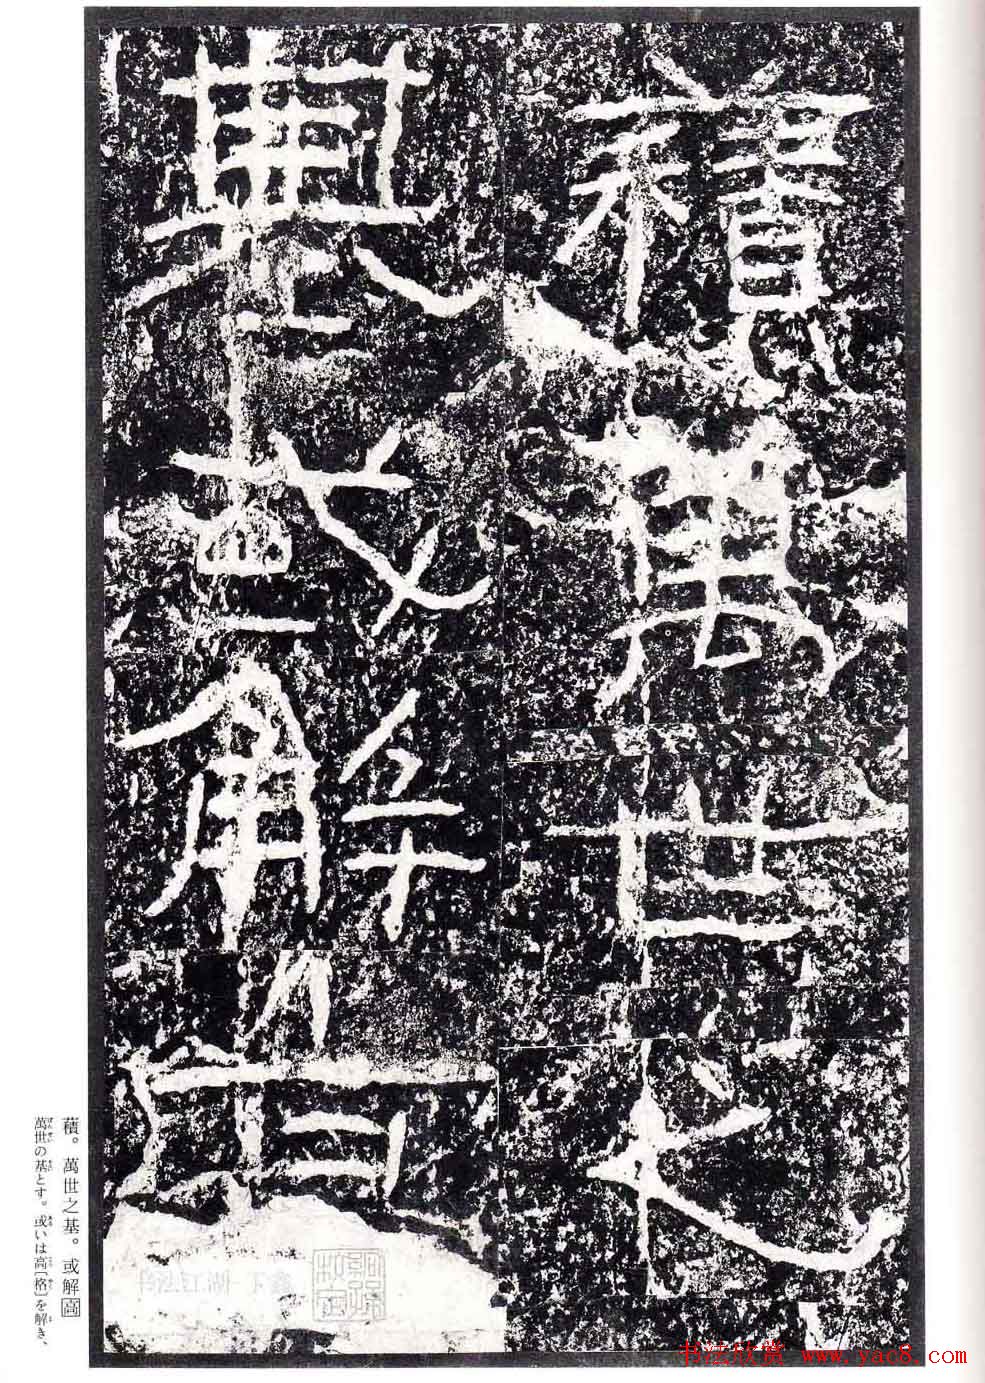 蘈萬世之
基或解高
蘈。萬世之基。或解高
萬世の基とす。或いは高〔格〕を解き、
书法欣赏 www.yac8.com